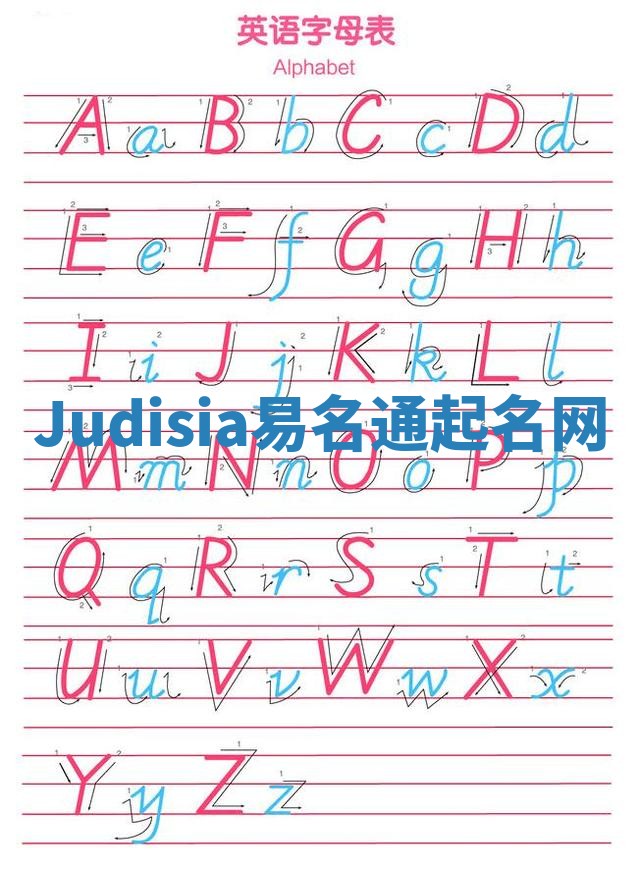 英语字母表
Alphabet
A a B b C c D d
E e F f G g H h
I i J j K k L l
Judisia易名通起名网
M m N n O o P p
Q q R r S s T t
U u V v W w X x
Y y Z z